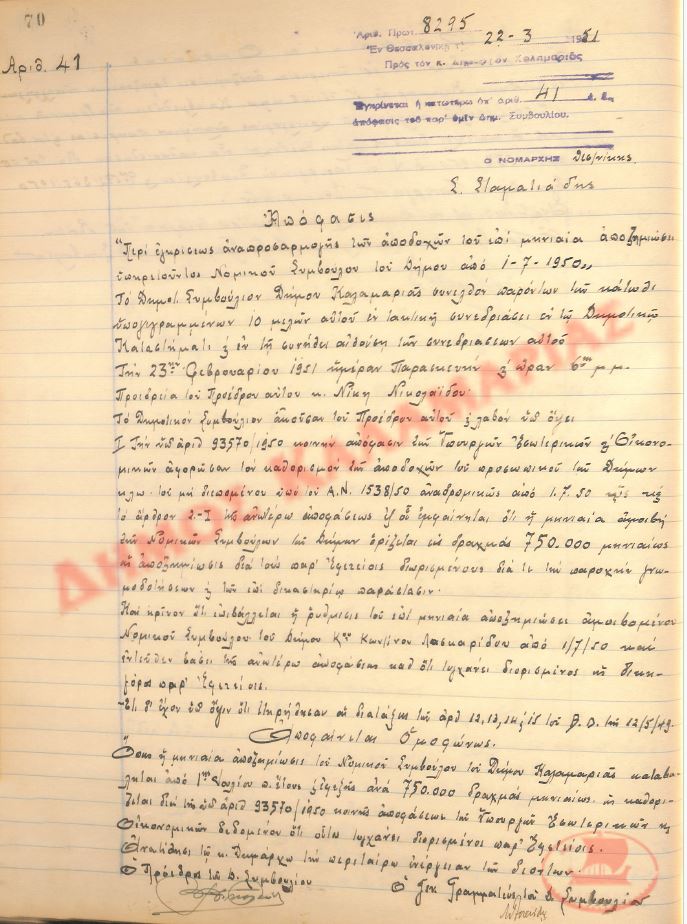 70
Αριθ. 41
Αριθ. Πρωτ. 8295
Ἐν Θεσσαλονίκῃ τῇ 22-3 1951
Πρὸς τὸν κ. Δήμαρχον Καλαμαριᾶς
Ἐγκρίνεται ἡ κατωτέρω ὑπ' ἀριθ. 41 ἀπόφασις τοῦ παρ' ὑμῖν Δημ. Συμβουλίου.
Ο ΝΟΜΑΡΧΗΣ Θεσ/νίκης
Σ. Σταματιάδης
Ἀπόφασις
"Περὶ ἐγκρίσεως ἀναπροσαρμογῆς τῶν ἀποδοχῶν τοῦ ἐπὶ μηνιαίᾳ ἀποζημιώσει
ὑπηρετοῦντος Νομικοῦ Συμβούλου τοῦ Δήμου ἀπὸ 1-7-1950"
Τὸ Δημοτ. Συμβούλιον Δήμου Καλαμαριᾶς συνελθὸν παρόντων τῶν κάτωθι
ὑπογεγραμμένων 10 μελῶν αὐτοῦ ἐν τακτικῇ συνεδριάσει ἐν τῷ Δημοτικῷ
Καταστήματι & ἐν τῇ συνήθει αἰθούσῃ τῶν συνεδριάσεων αὐτοῦ
Τὴν 23ην Φεβρουαρίου 1951 ἡμέραν Παρασκευὴν & ὥραν 6ην μ.μ.
Προεδρείᾳ τοῦ Προέδρου αὐτοῦ κ. Νίκη Νικολαΐδου.
Τὸ Δημοτικὸν Συμβούλιον ἀκοῦσαν τοῦ Προέδρου αὐτοῦ & λαβὸν ὑπ' ὄψει
I Τὴν ὑπ' ἀριθ 93570/1950 κοινὴν ἀπόφασιν τῶν Ὑπουργῶν Ἐσωτερικῶν & Οἰκονο-
μικῶν ἀφορῶσαν τὸν καθορισμὸν τῶν ἀποδοχῶν τοῦ προσωπικοῦ τῶν Δήμων
κλπ. τοῦ μὴ διεπομένου ὑπὸ τοῦ Α.Ν. 1538/50 ἀναδρομικῶς ἀπὸ 1.7.50
τὸ ἄρθρον 2-I τῆς ἀνωτέρω ἀποφάσεως ἐξ οὗ ἐμφαίνηται ὅτι ἡ μηνιαία ἀμοιβὴ
τῶν Νομικῶν Συμβούλων τῶν Δήμων ὁρίζεται εἰς δραχμὰς 750.000 μηνιαίως
ὡς ἀποζημίωσις διὰ τοὺς παρ' Ἐφετείοις διωρισμένους διά τε τὴν παροχὴν γνω-
μοδοτήσεων & τῶν ἐπὶ δικαστηρίῳ παράστασιν.
Καὶ κρῖνον ὅτι ἐπιβάλλεται ἡ ρύθμισις τοῦ ἐπὶ μηνιαίᾳ ἀποζημιώσει ἀμειβομένου
Νομικοῦ Συμβούλου τοῦ Δήμου Κου Κων/νου Λασκαρίδου ἀπὸ 1/7/50 καὶ
ἐντεῦθεν βάσει τῆς ἀνωτέρω ἀποφάσεως καθ' ὅτι τυγχάνει διορισμένος ὡς δικη-
γόρος παρ' Ἐφετείοις.
-Ἔτι δ' ἔχον ὑπ' ὄψιν ὅτι ἐτηρήθησαν αἱ διατάξεις τῶν ἀρθ 12, 13, 14 & 15 τοῦ Β.Δ. τῆς 12/5/49.
Ἀποφαίνεται Ὁμοφώνως.
Ὅπως ἡ μηνιαία ἀποζημίωσις τοῦ Νομικοῦ Συμβούλου τοῦ Δήμου Καλαμαριᾶς καταβάλ-
ληται ἀπὸ 1ης Ἰουλίου π. ἔτους & ἐφεξῆς ἀνὰ 750.000 δραχμὰς μηνιαίως ὡς καθορί-
ζεται διὰ τῆς ὑπ' ἀριθ 93570/1950 κοινῆς ἀποφάσεως τῶν Ὑπουργῶν Ἐσωτερικῶν κ
Οἰκονομικῶν δεδομένου ὅτι οὗτος τυγχάνει διορισμένος παρ' Ἐφετείοις.
Ἀνατίθησι τῷ κ. Δημάρχῳ τὴν περαιτέρω ἐνέργειαν τῶν δεόντων.
Ὁ Πρόεδρος τοῦ Δ. Συμβουλίου
Ὁ Γεν. Γραμματεὺς τοῦ Δ. Συμβουλίου
ΔΗΜΟΣ ΚΑΛΑΜΑΡΙΑΣ